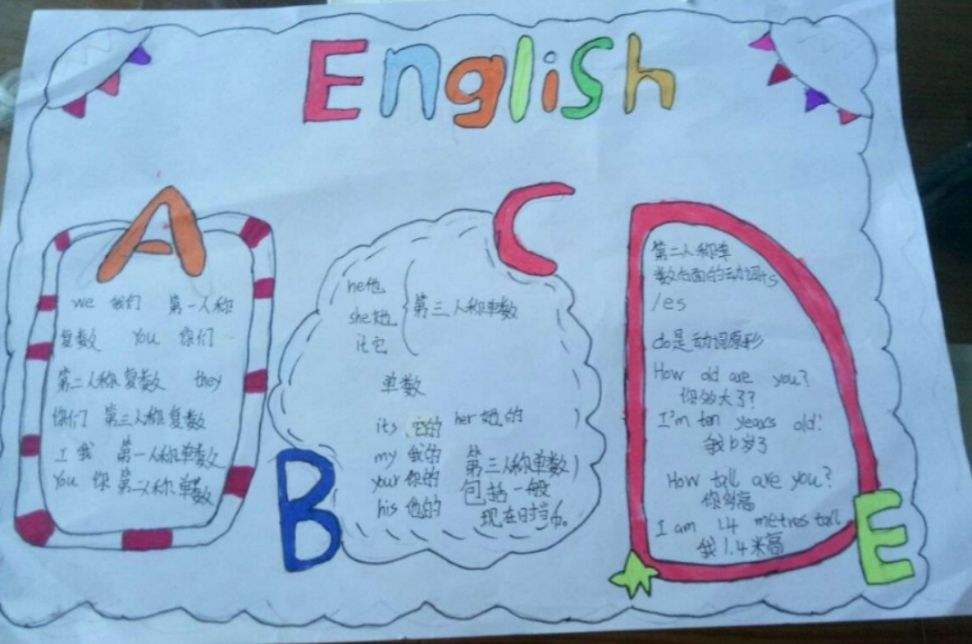 English
A
we 我们 第一人称
复数 You 你们
第二人称复数 they
你们 第三人称复数
I 我 第一人称单数
You 你 第二人称单数
B
C
he他
she她
it它
第三人称单数
单数
its 它的 her她的
my 我的
your你的
his 他的
第三人称单数
包括一般
现在时当
第二人称
数后面的动词s
/es
do是动词原形
How old are you?
你多大了?
I'm ten years old!
我10岁了
How tall are you?
你多高
I am 1.4 metres tall
我1.4米高
E